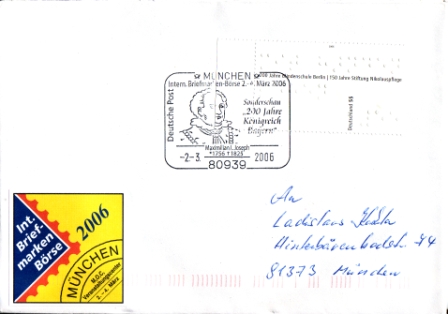 MÜNCHEN
Intern. Briefmarken-Börse 2.-4. März 2006
Deutsche Post
Sonderschau
„200 Jahre
Königreich
Bayern"
Maximilian I. Joseph
*1756 †1825
-2-3 2006
80939
200 Jahre Blindenschule Berlin | 150 Jahre Stiftung Nikolauspflege
Deutschland 55
Int.
Brief-
marken
Börse
2006
MÜNCHEN
M,O,C,
2. - 4. März
An
Ladislaus
81373 München